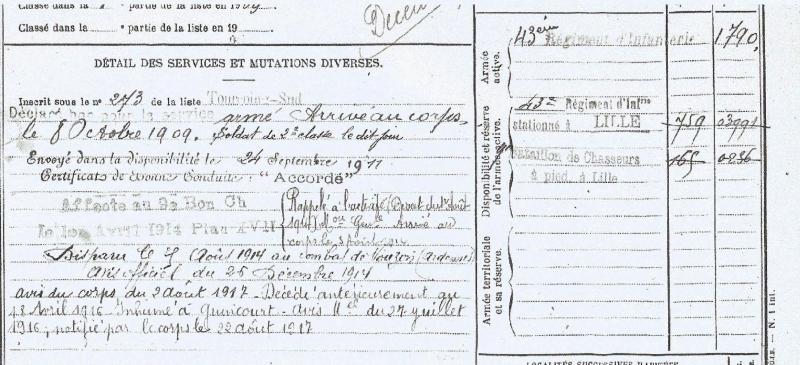 Classé dans la partie de la liste en 1909
Classé dans la partie de la liste en 19
DÉTAIL DES SERVICES ET MUTATIONS DIVERSES.
Inscrit sous le nº 273 de la liste Tourcoing-Sud
service armé Arrivé au corps
le 8 Octobre 1909. Soldat de 2e classe le dit jour
Envoyé dans la disponibilité le 24 Septembre 1911
Certificats de Bonne Conduite: "Accordé"
Affecté au 9e Bon Ch
Le 1er Avril 1914 Plan XVII
Rappelé à l'activité
1914) Mon Gale Arrivé au
corps le 3 août 1914
Disparu le Août 1914 au combat de (Ardennes)
avis officiel du 25 Décembre 1914
avis du corps du 2 août 1917 - Décédé antérieurement au
18 Avril 1916 - Inhumé à Guincourt - avis du 27 juillet
1916, notifié par le corps le 22 août 1917
Armée
active.
43ème Régiment d'Infanterie 1790
Disponibilité et réserve
de l'armée active.
43e Régiment d'Infrie
stationné à LILLE 759 03991
Bataillon de Chasseurs
à pied, à Lille 165 0236
Armée territoriale
et sa réserve.
LOCALITÉS SUCCESSIVES HABITÉES
N. 1 int.